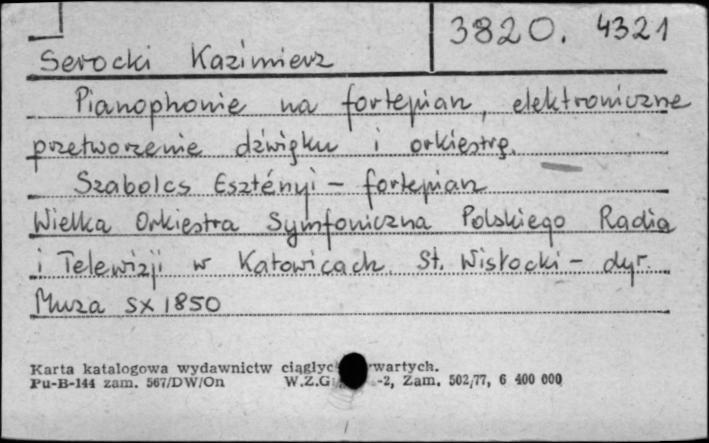 3820. 4321
Serocki Kazimierz
Pianophonie na fortepian, elektroniczne
przetworzenie dźwięku i orkiestrę.
Szabolcs Esztényi – fortepian
Wielka Orkiestra Symfoniczna Polskiego Radia
i Telewizji w Katowicach. St. Wisłocki – dyr.
Muza SX 1850
Karta katalogowa wydawnictw
Pu-B-144 zam. 567/DW/On -2, Zam. 502/77, 6 400 000